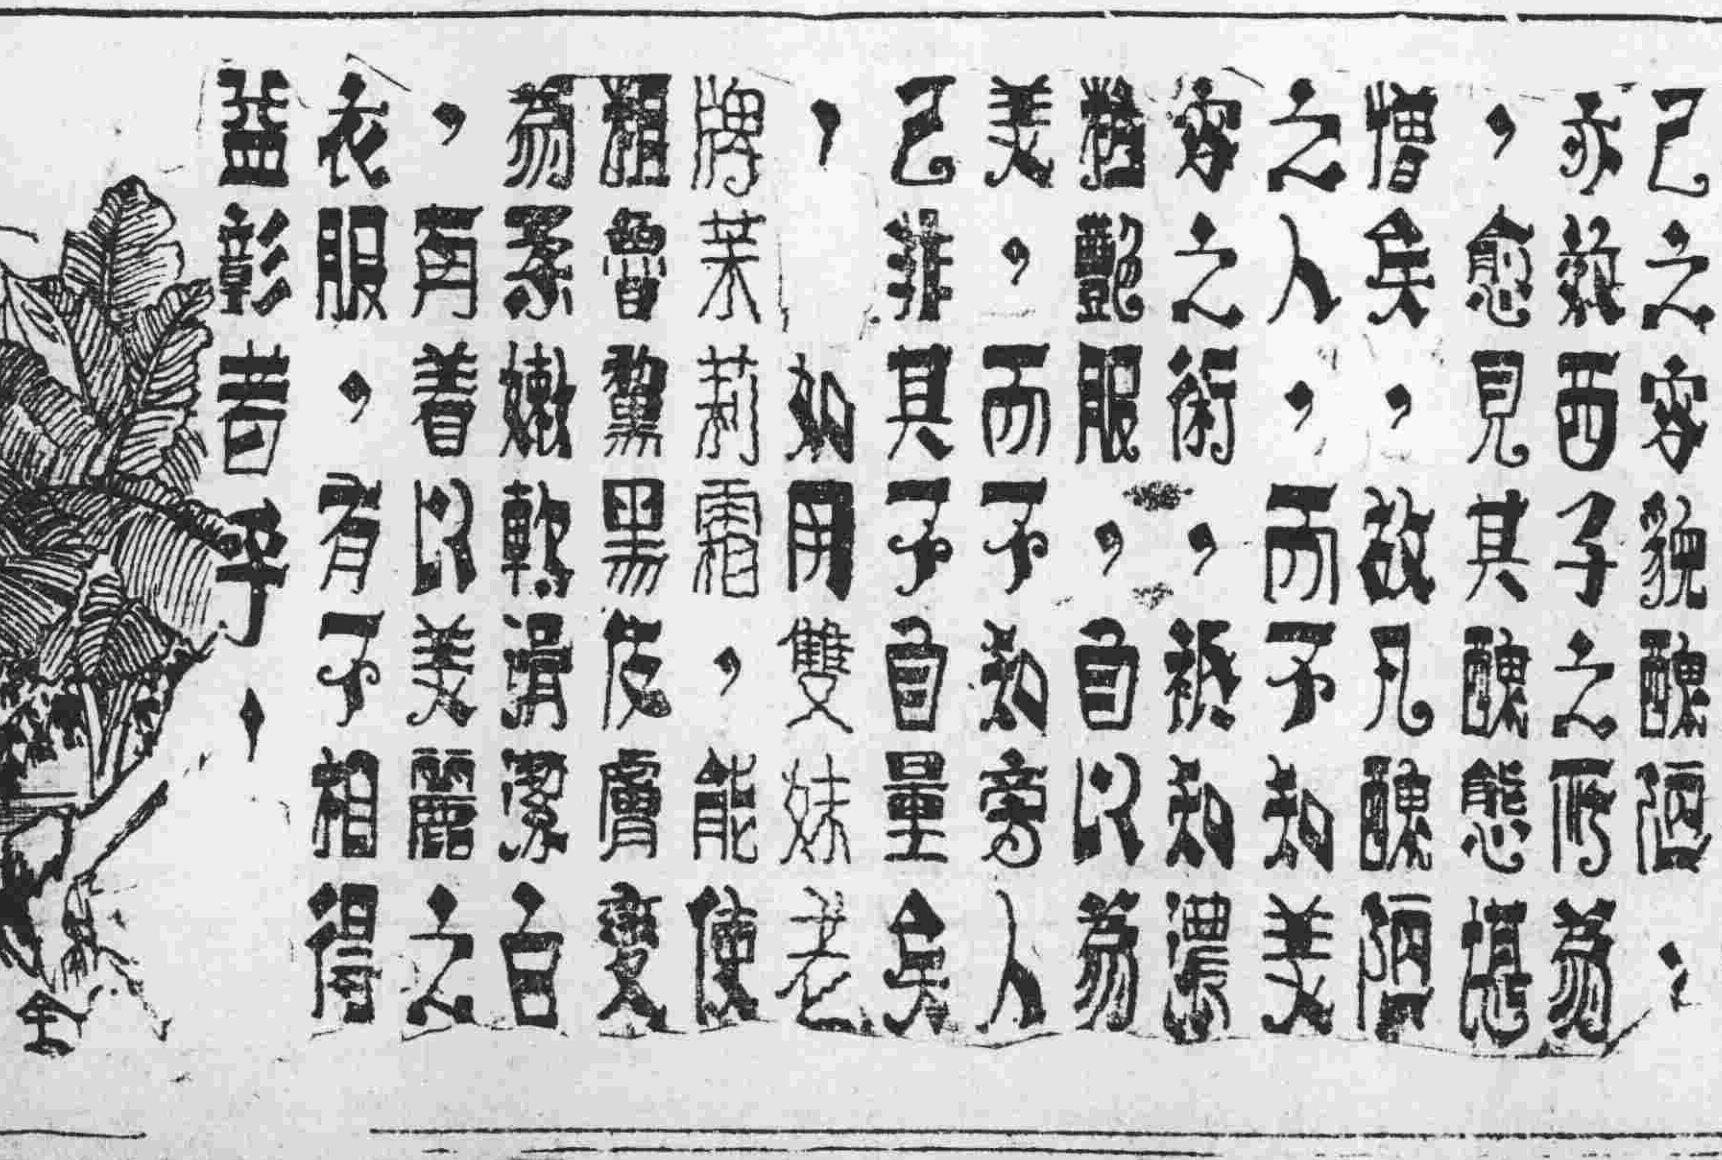 己之容貌醜陋、
亦效西子之所為
，愈見其醜態堪
憎矣，故凡醜陋
之人，而不知美
容之術，祇知濃
粧艷服，自以為
美，而不知旁人
己非其不自量矣
，如用雙妹老
牌茉莉霜，能使
粗魯黧黑皮膚變
為柔嫩軟滑潔白
，再着以美麗之
衣服，有不相得
益彰者乎、